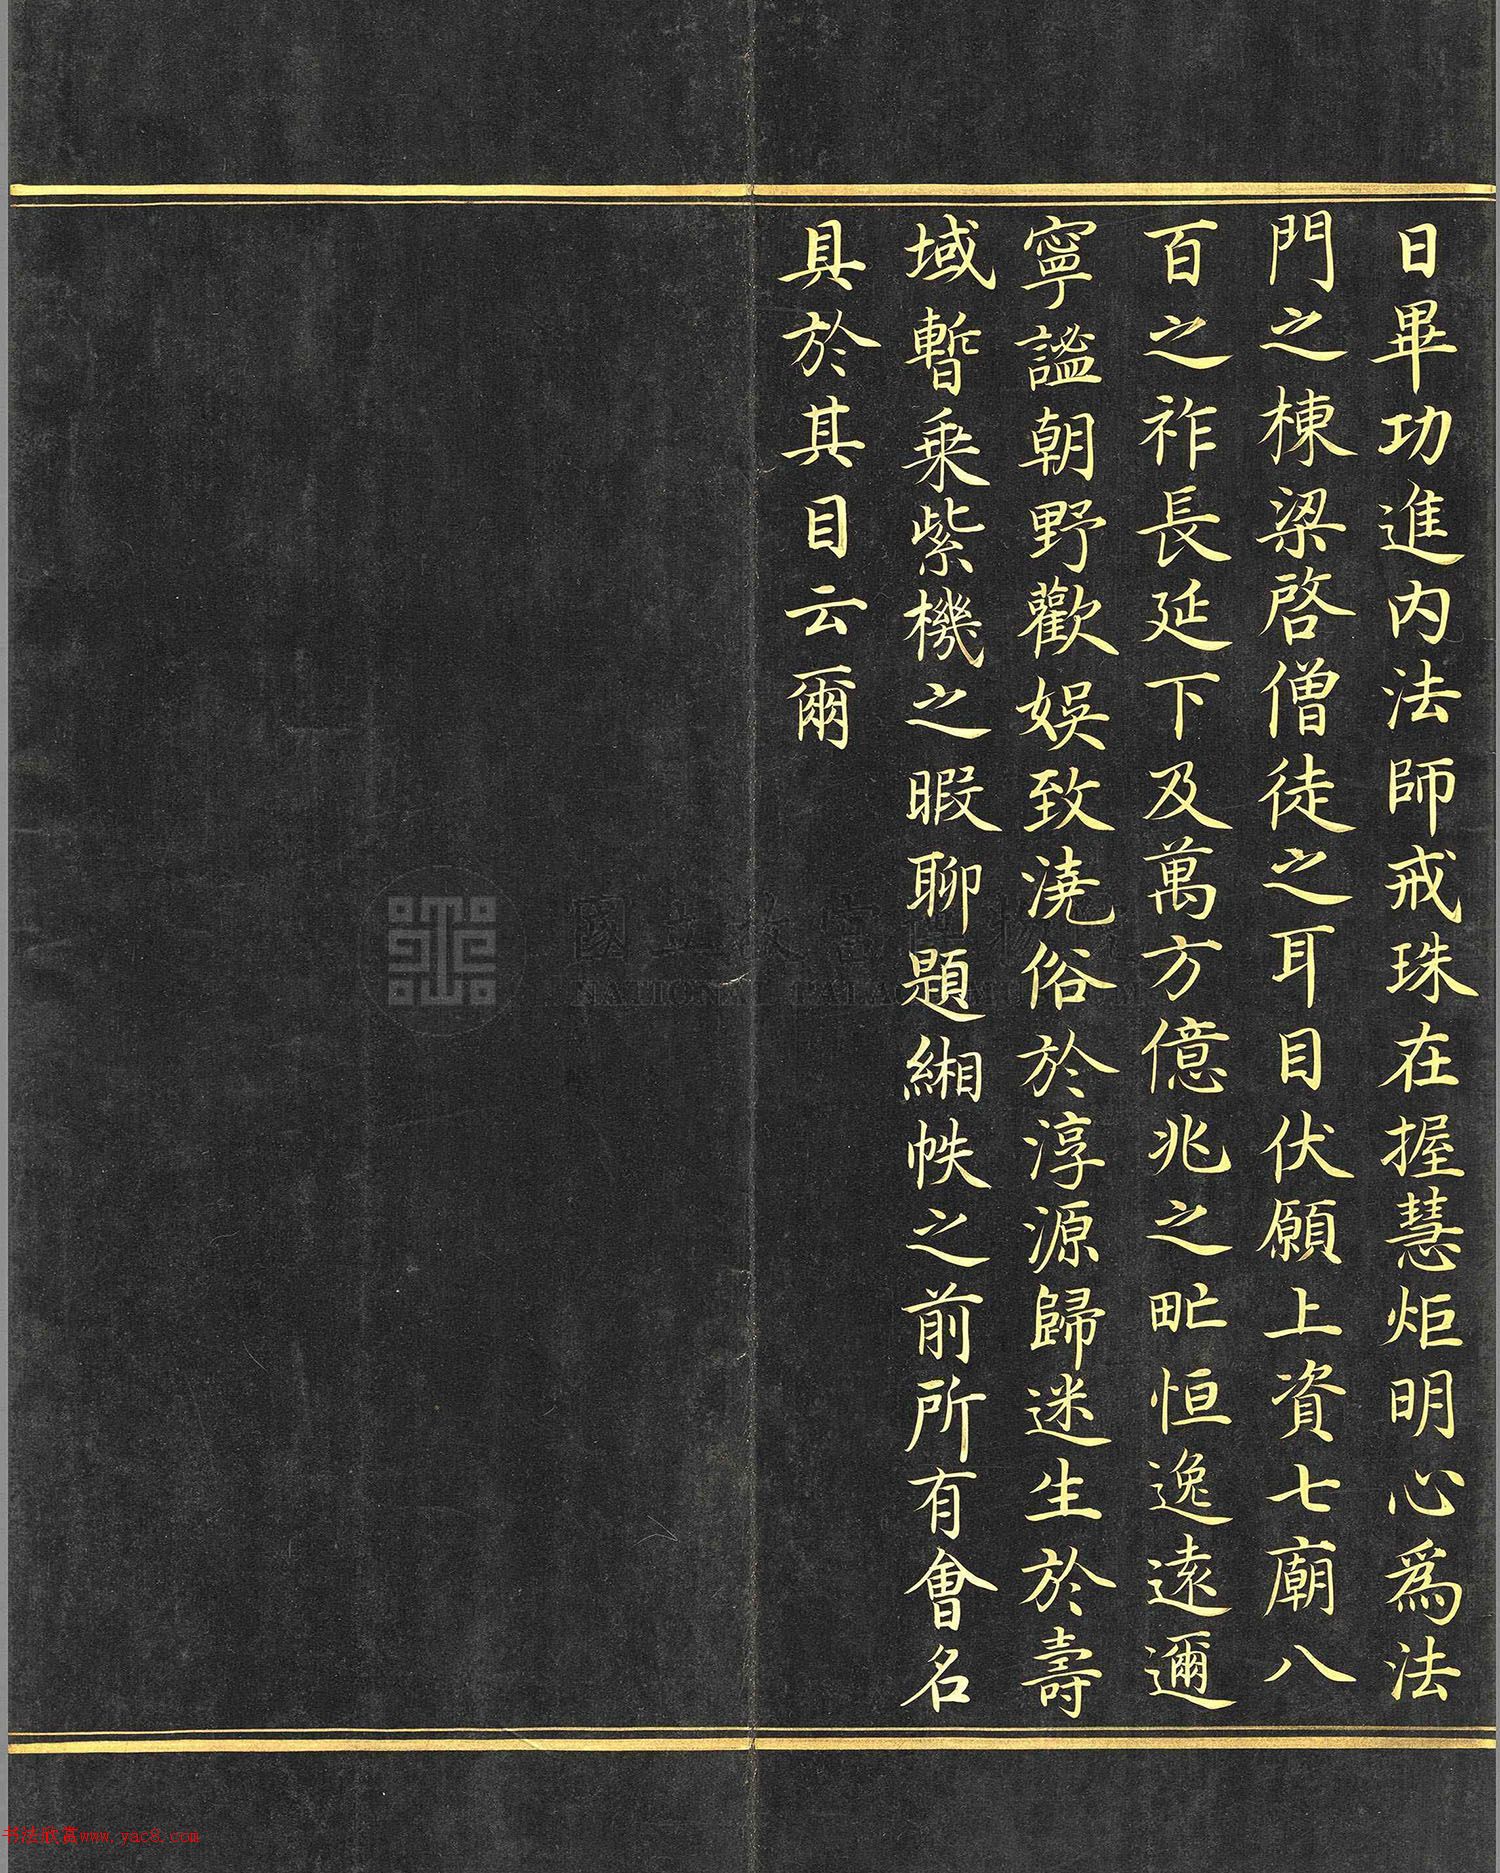 日畢功進内法師戒珠在握慧炬明心為法
門之棟梁啓僧徒之耳目伏願上資七廟八
百之祚長延下及萬方億兆之甿恒逸遠邇
寧謐朝野歡娛致澆俗於淳源歸迷生於壽
域暫乗紫機之暇聊題緗帙之前所有會名
具於其目云爾
國立故宮博物院
NATIONAL PALACE MUSEUM
书法欣赏www.yac8.com